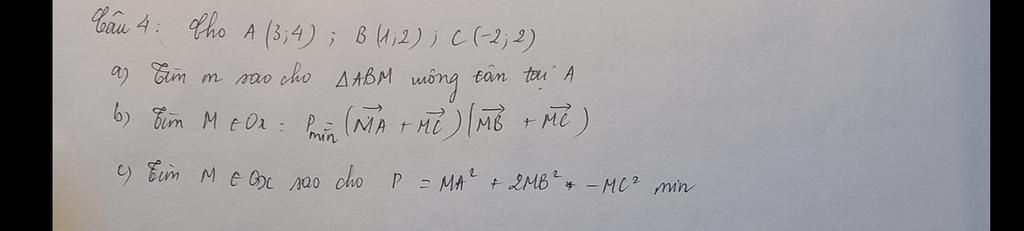 Câu 4: Cho A(3;4); B(1;2); C(-2;2)
a) Tìm m sao cho ΔABM vuông cân tại A
b) Tìm M ∈ Ox: P min = (MA + MC)(MB + MC)
c) Tìm M ∈ Ox sao cho P = MA² + 2MB² - MC² min